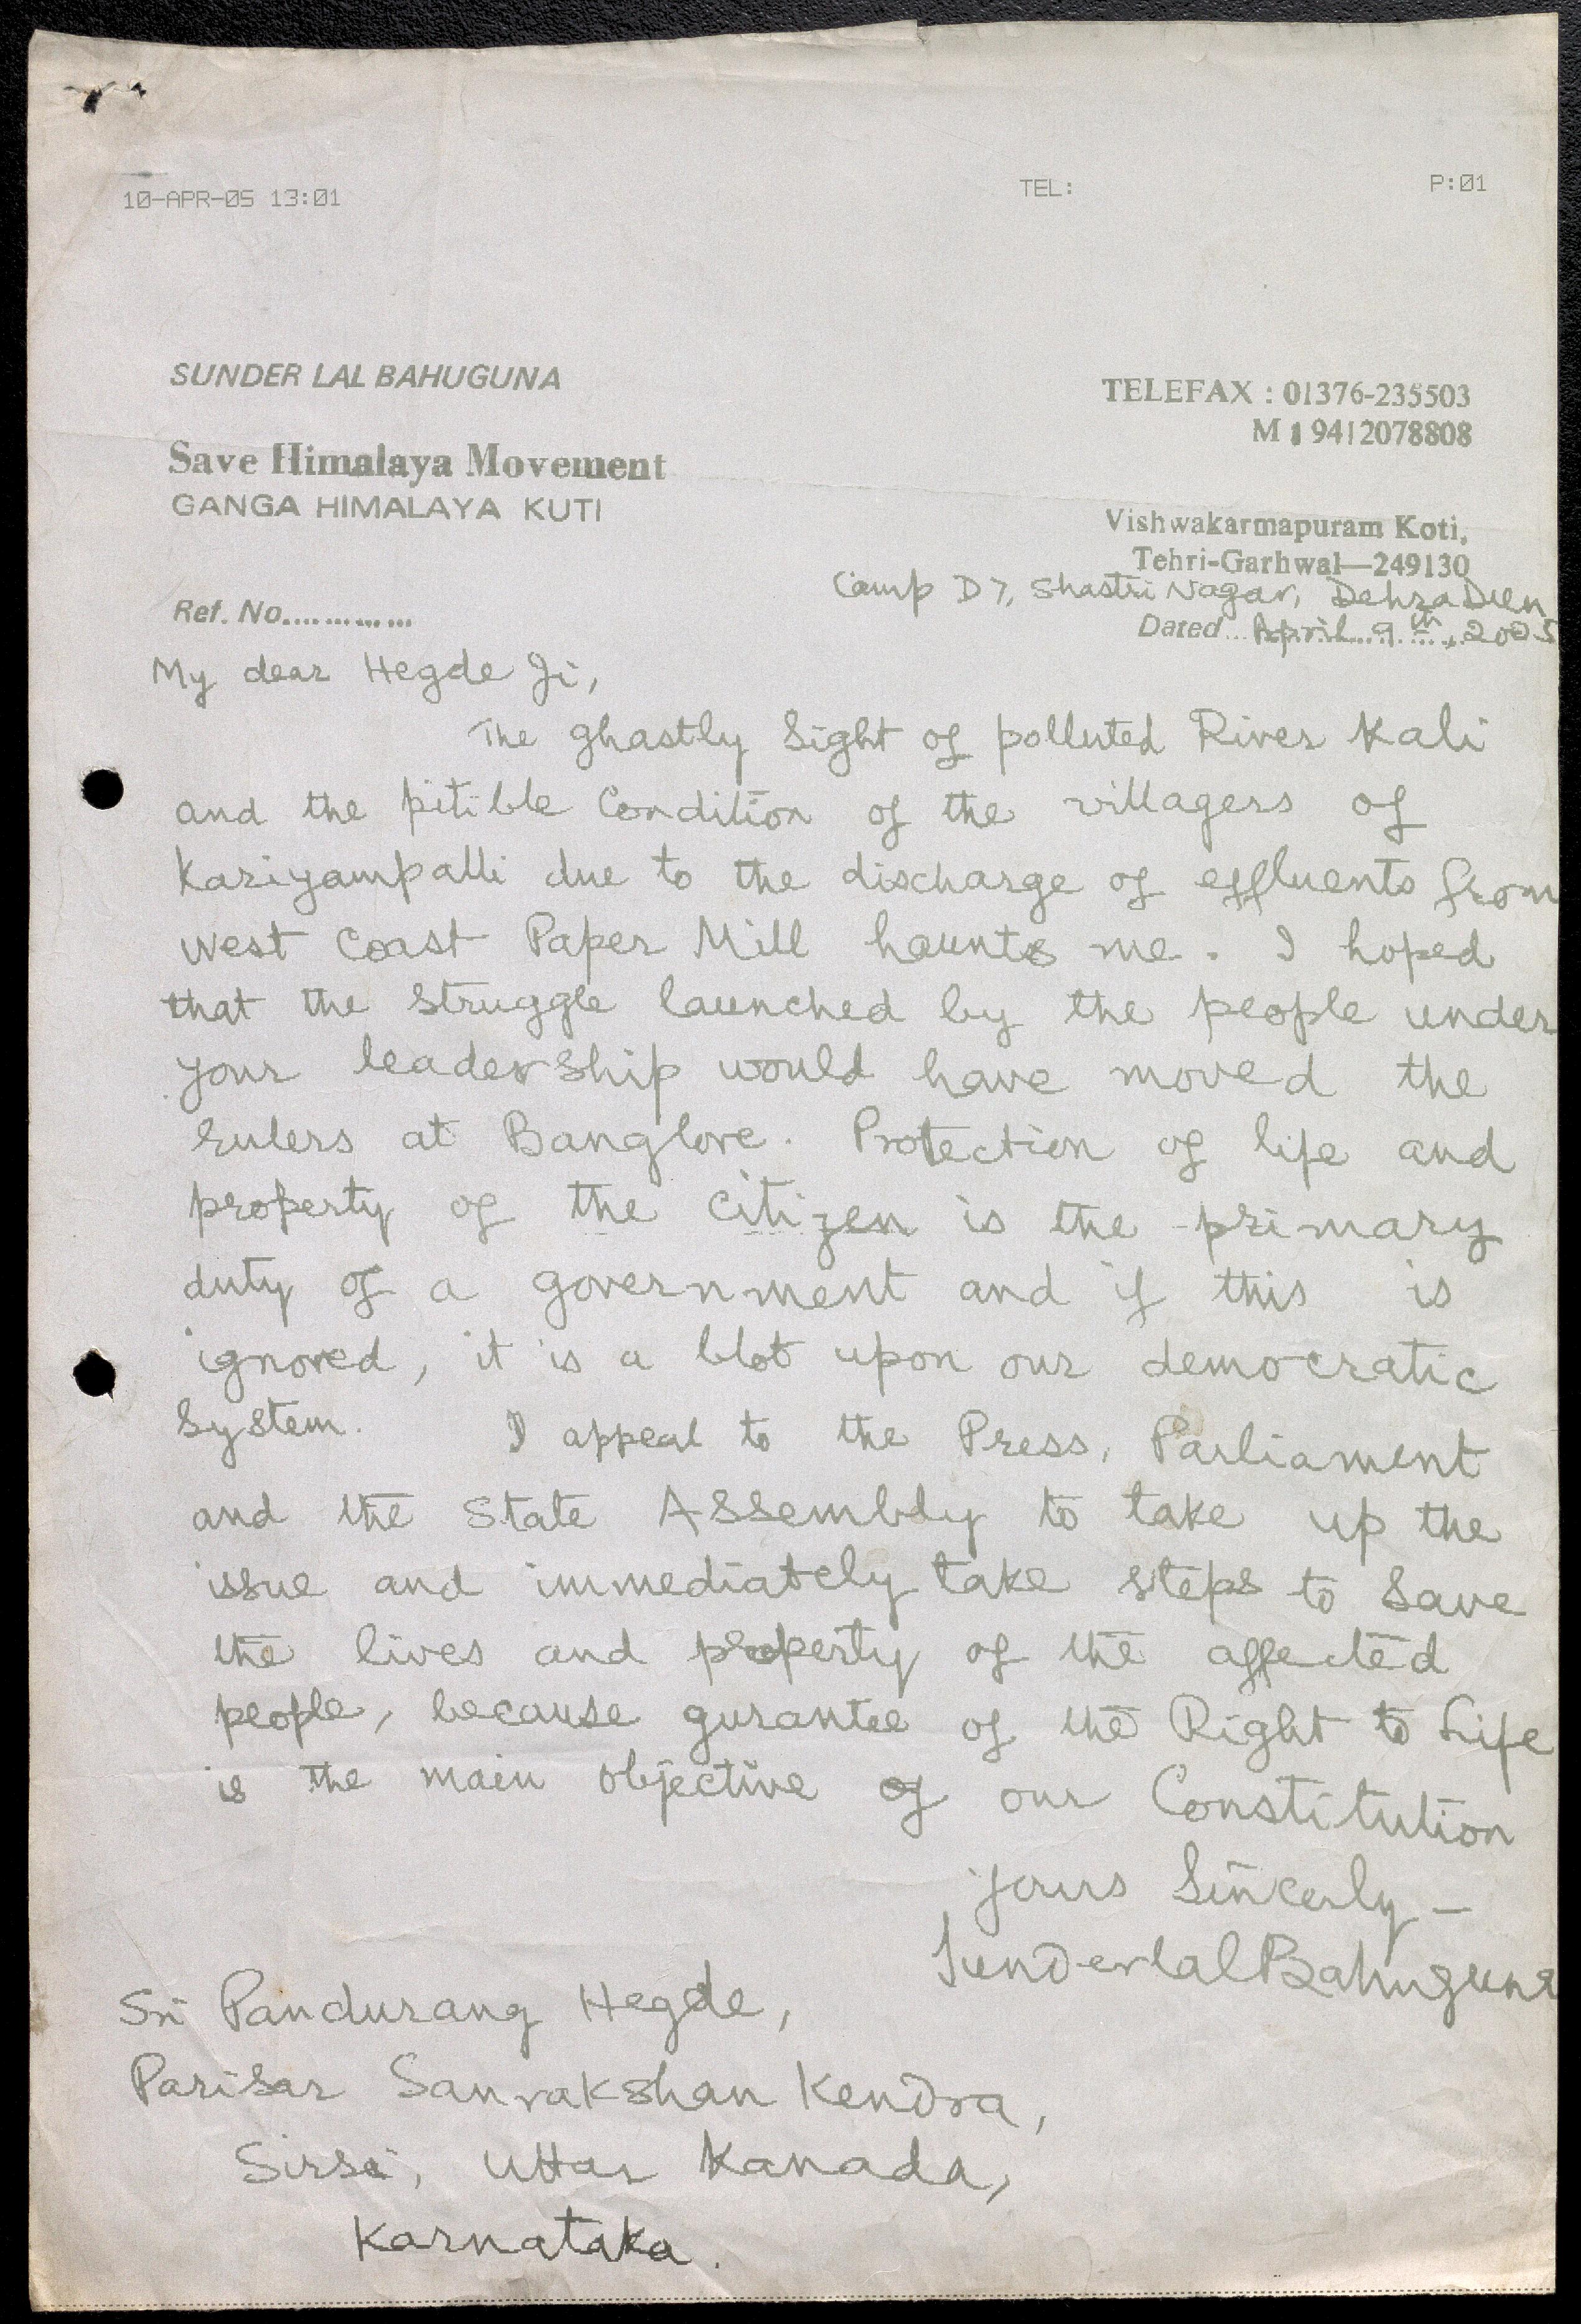 10-APR-05 13:01 TEL: P:01
SUNDER LAL BAHUGUNA
TELEFAX : 01376-235503
M : 9412078808
Save Himalaya Movement
GANGA HIMALAYA KUTI
Vishwakarmapuram Koti,
Tehri-Garhwal—249130
Camp D7, Shastri Nagar, DehraDun
Ref. No............
Dated... April 9th, 2005
My dear Hegde Ji,
The ghastly Sight of polluted River Kali
and the pitible Condition of the villagers of
Kariyampalli due to the discharge of effluents from
West Coast Paper Mill haunts me. I hoped
that the struggle launched by the people under
your leadership would have moved the
rulers at Banglore. Protection of life and
property of the citizen is the primary
duty of a government and if this is
ignored, it is a blot upon our democratic
System. I appeal to the Press, Parliament
and the State Assembly to take up the
issue and immediately take steps to Save
the lives and property of the affected
people, because gurantee of the Right to Life
is the main objective of our Constitution
Yours Sincerly —
Sunderlal Bahuguna
Sri Pandurang Hegde,
Parisar Sanrakshan Kendra,
Sirsi, Uttar Kanada,
Karnataka.